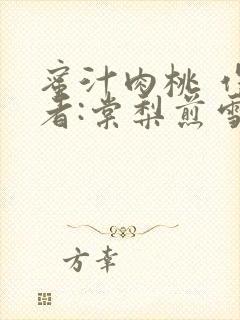 蜜汁肉桃 作
者:棠梨煎雪
方幸